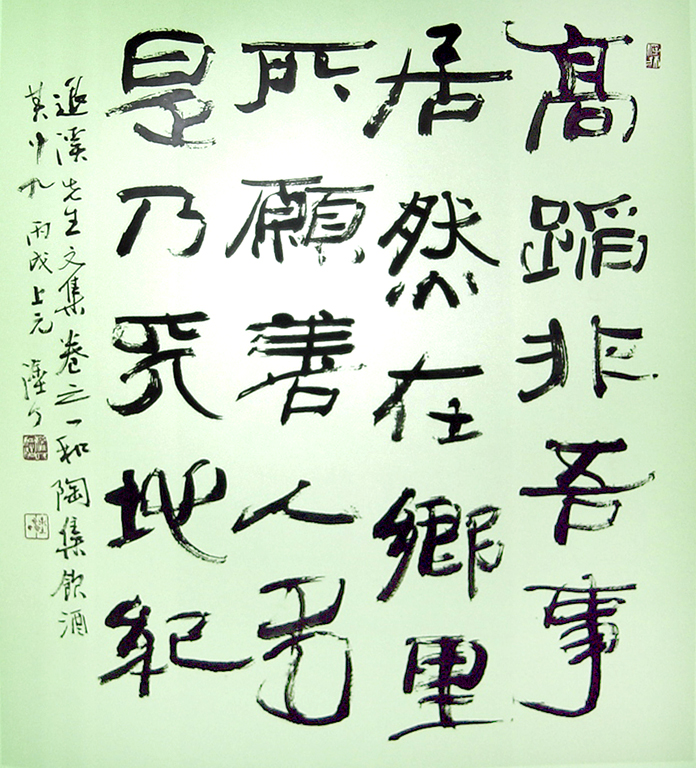 高蹈非吾事
居然在鄉里
所願善人多
是乃天地紀
退溪先生文集卷之一和陶集飲酒
其十九 丙戌上元